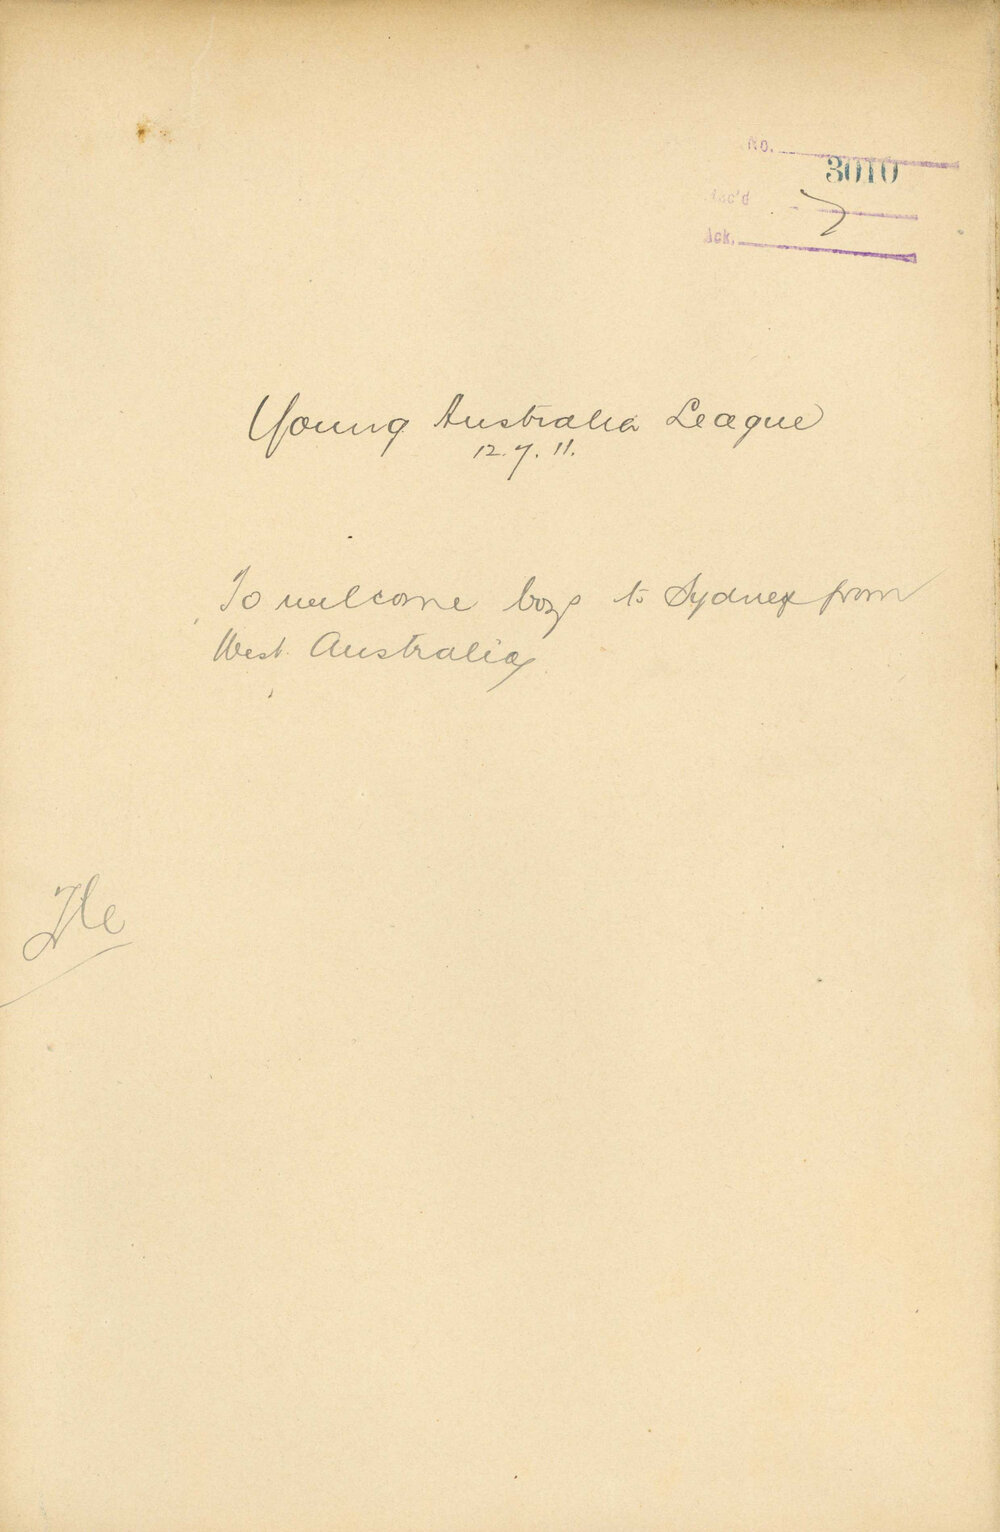 No. 3010
Rec'd
Ack.
Young Australia League
12.7.11.
To welcome boys to Sydney from
West Australia
File